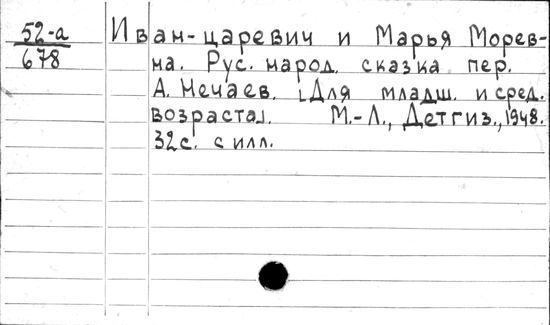 52-а
678
Иван-царевич и Марья Морев-
на. Рус. народ. сказка пер.
А. Нечаев. [Для младш. и сред.
возраста]. М.-Л., Детгиз., 1948.
32с. с илл.